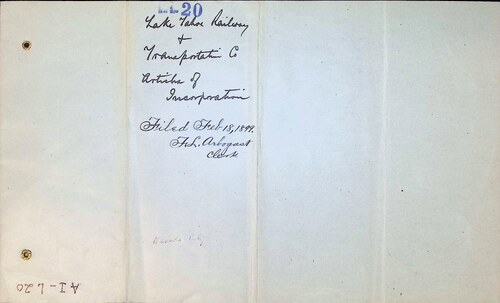 20
Lake Tahoe Railway
+
Transportatn Co
Articles of
Incorporation
Filed Feb 18, 1899.
F.L. Arbogast
Clerk
AI-L20